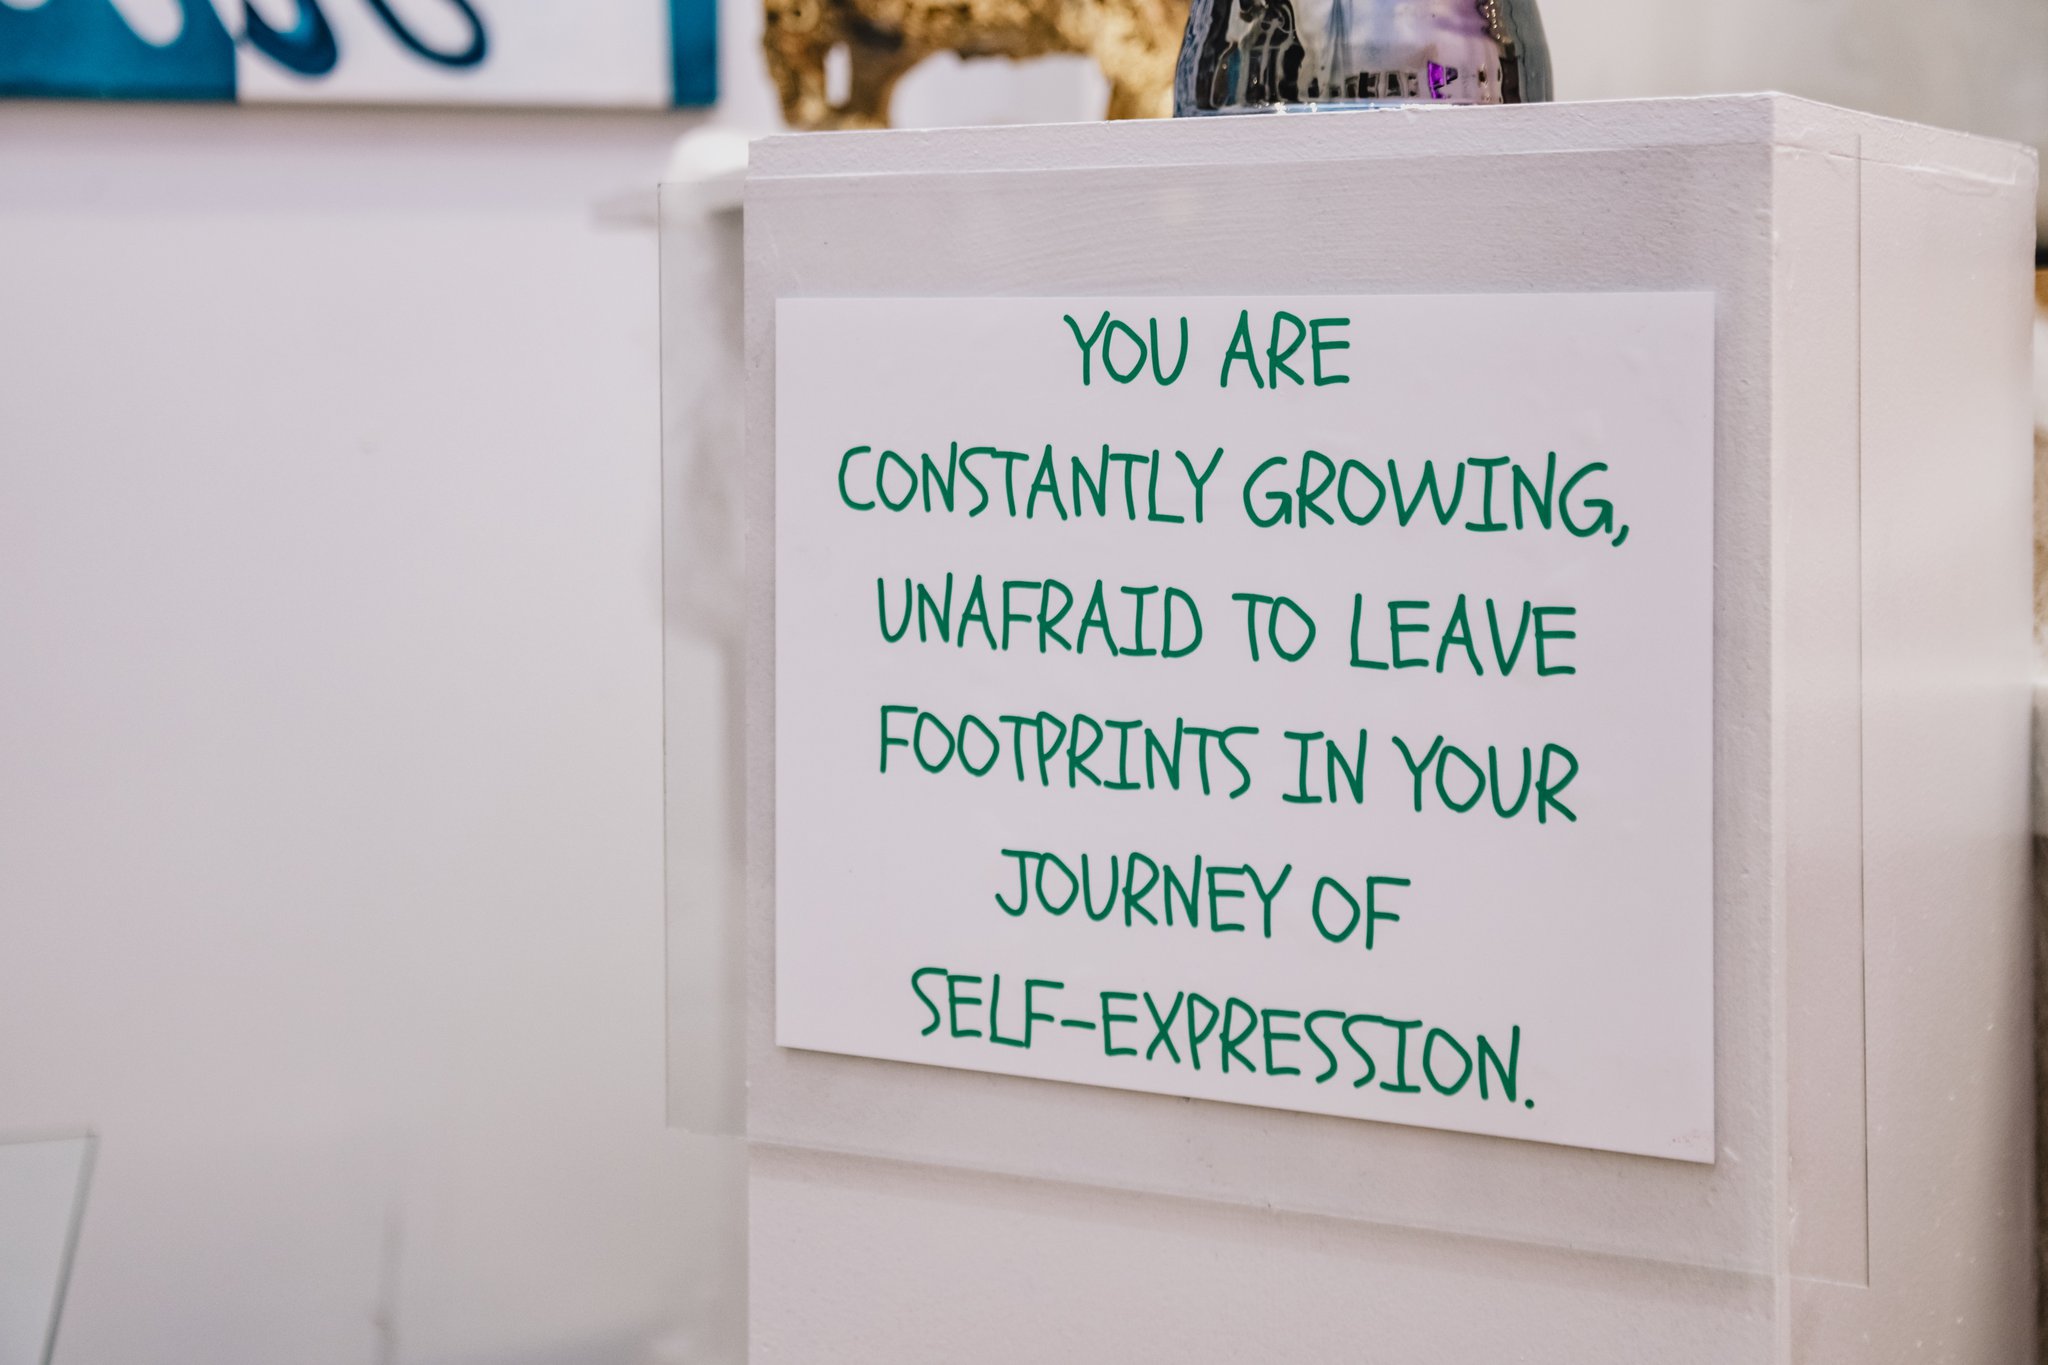 YOU ARE
CONSTANTLY GROWING,
UNAFRAID TO LEAVE
FOOTPRINTS IN YOUR
JOURNEY OF
SELF-EXPRESSION.